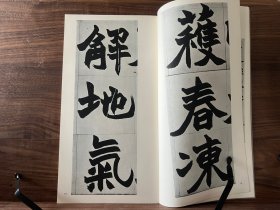 穫春凍
解地氣